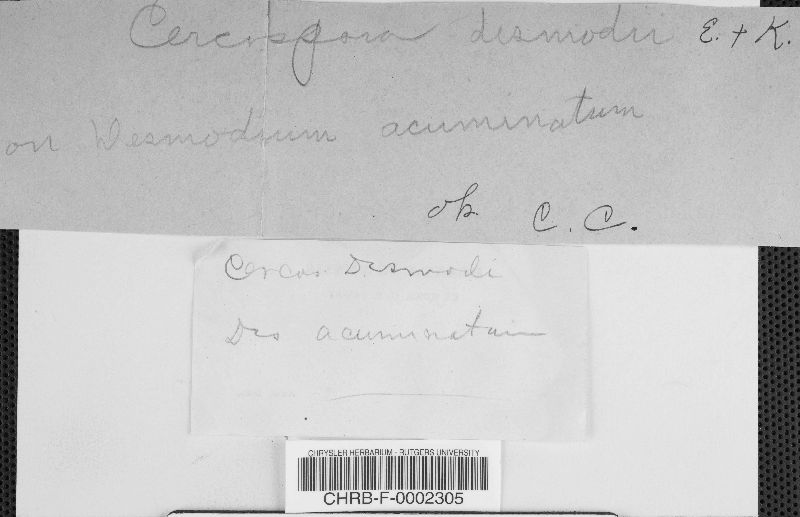 Cercospora desmodii E. + K.
on Desmodium acuminatum
ok. C. C.
Cercos Desmodi
Des acuminatum
CHRYSLER HERBARIUM - RUTGERS UNIVERSITY
CHRB-F-0002305